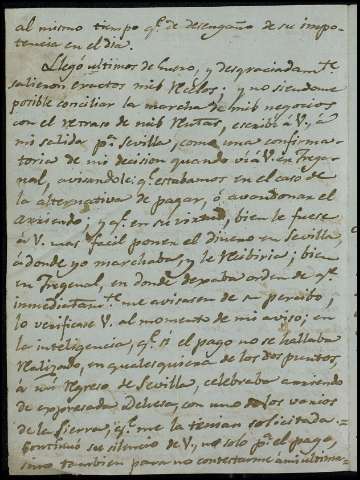 al mismo tiempo qe. de desengaño de su impo-
tencia en el dia.
Llegó ultimos de Enero, y desgraciadamte.
salieron exactos mis Recelos; y no siendome
posible conciliar la marcha de mis negocios
con el retraso de mis Rentas, escribí á V., á
mi salida pa. Sevilla, como una confirma-
toria de mi decision quando vi á V. en Frege-
nal, avisandole qe. estabamos en el caso de
la alternativa de pagar, ó avandonar el
arriendo; y qe. en su virtud, bien le fuese
á V. mas facil poner el dinero en Sevilla,
á donde yo marchaba, y le Recibiria; bien
en Fregenal, en donde dexaba orden de qe.
inmediatamte. me avisasen de su percibo;
lo verificase V. al momento de mi aviso; en
la inteligencia, qe. si el pago no se hallaba
Realizado, en qualesquiera de los dos puntos,
á mi Regreso de Sevilla, celebraba arriendo
de expresada Dehesa, con uno de los varios
de la Sierra, qe. me la tenian solicitada.
Continuó su silencio de V., no solo pa. el pago,
sino tambien para no contestarme á mi ultima-